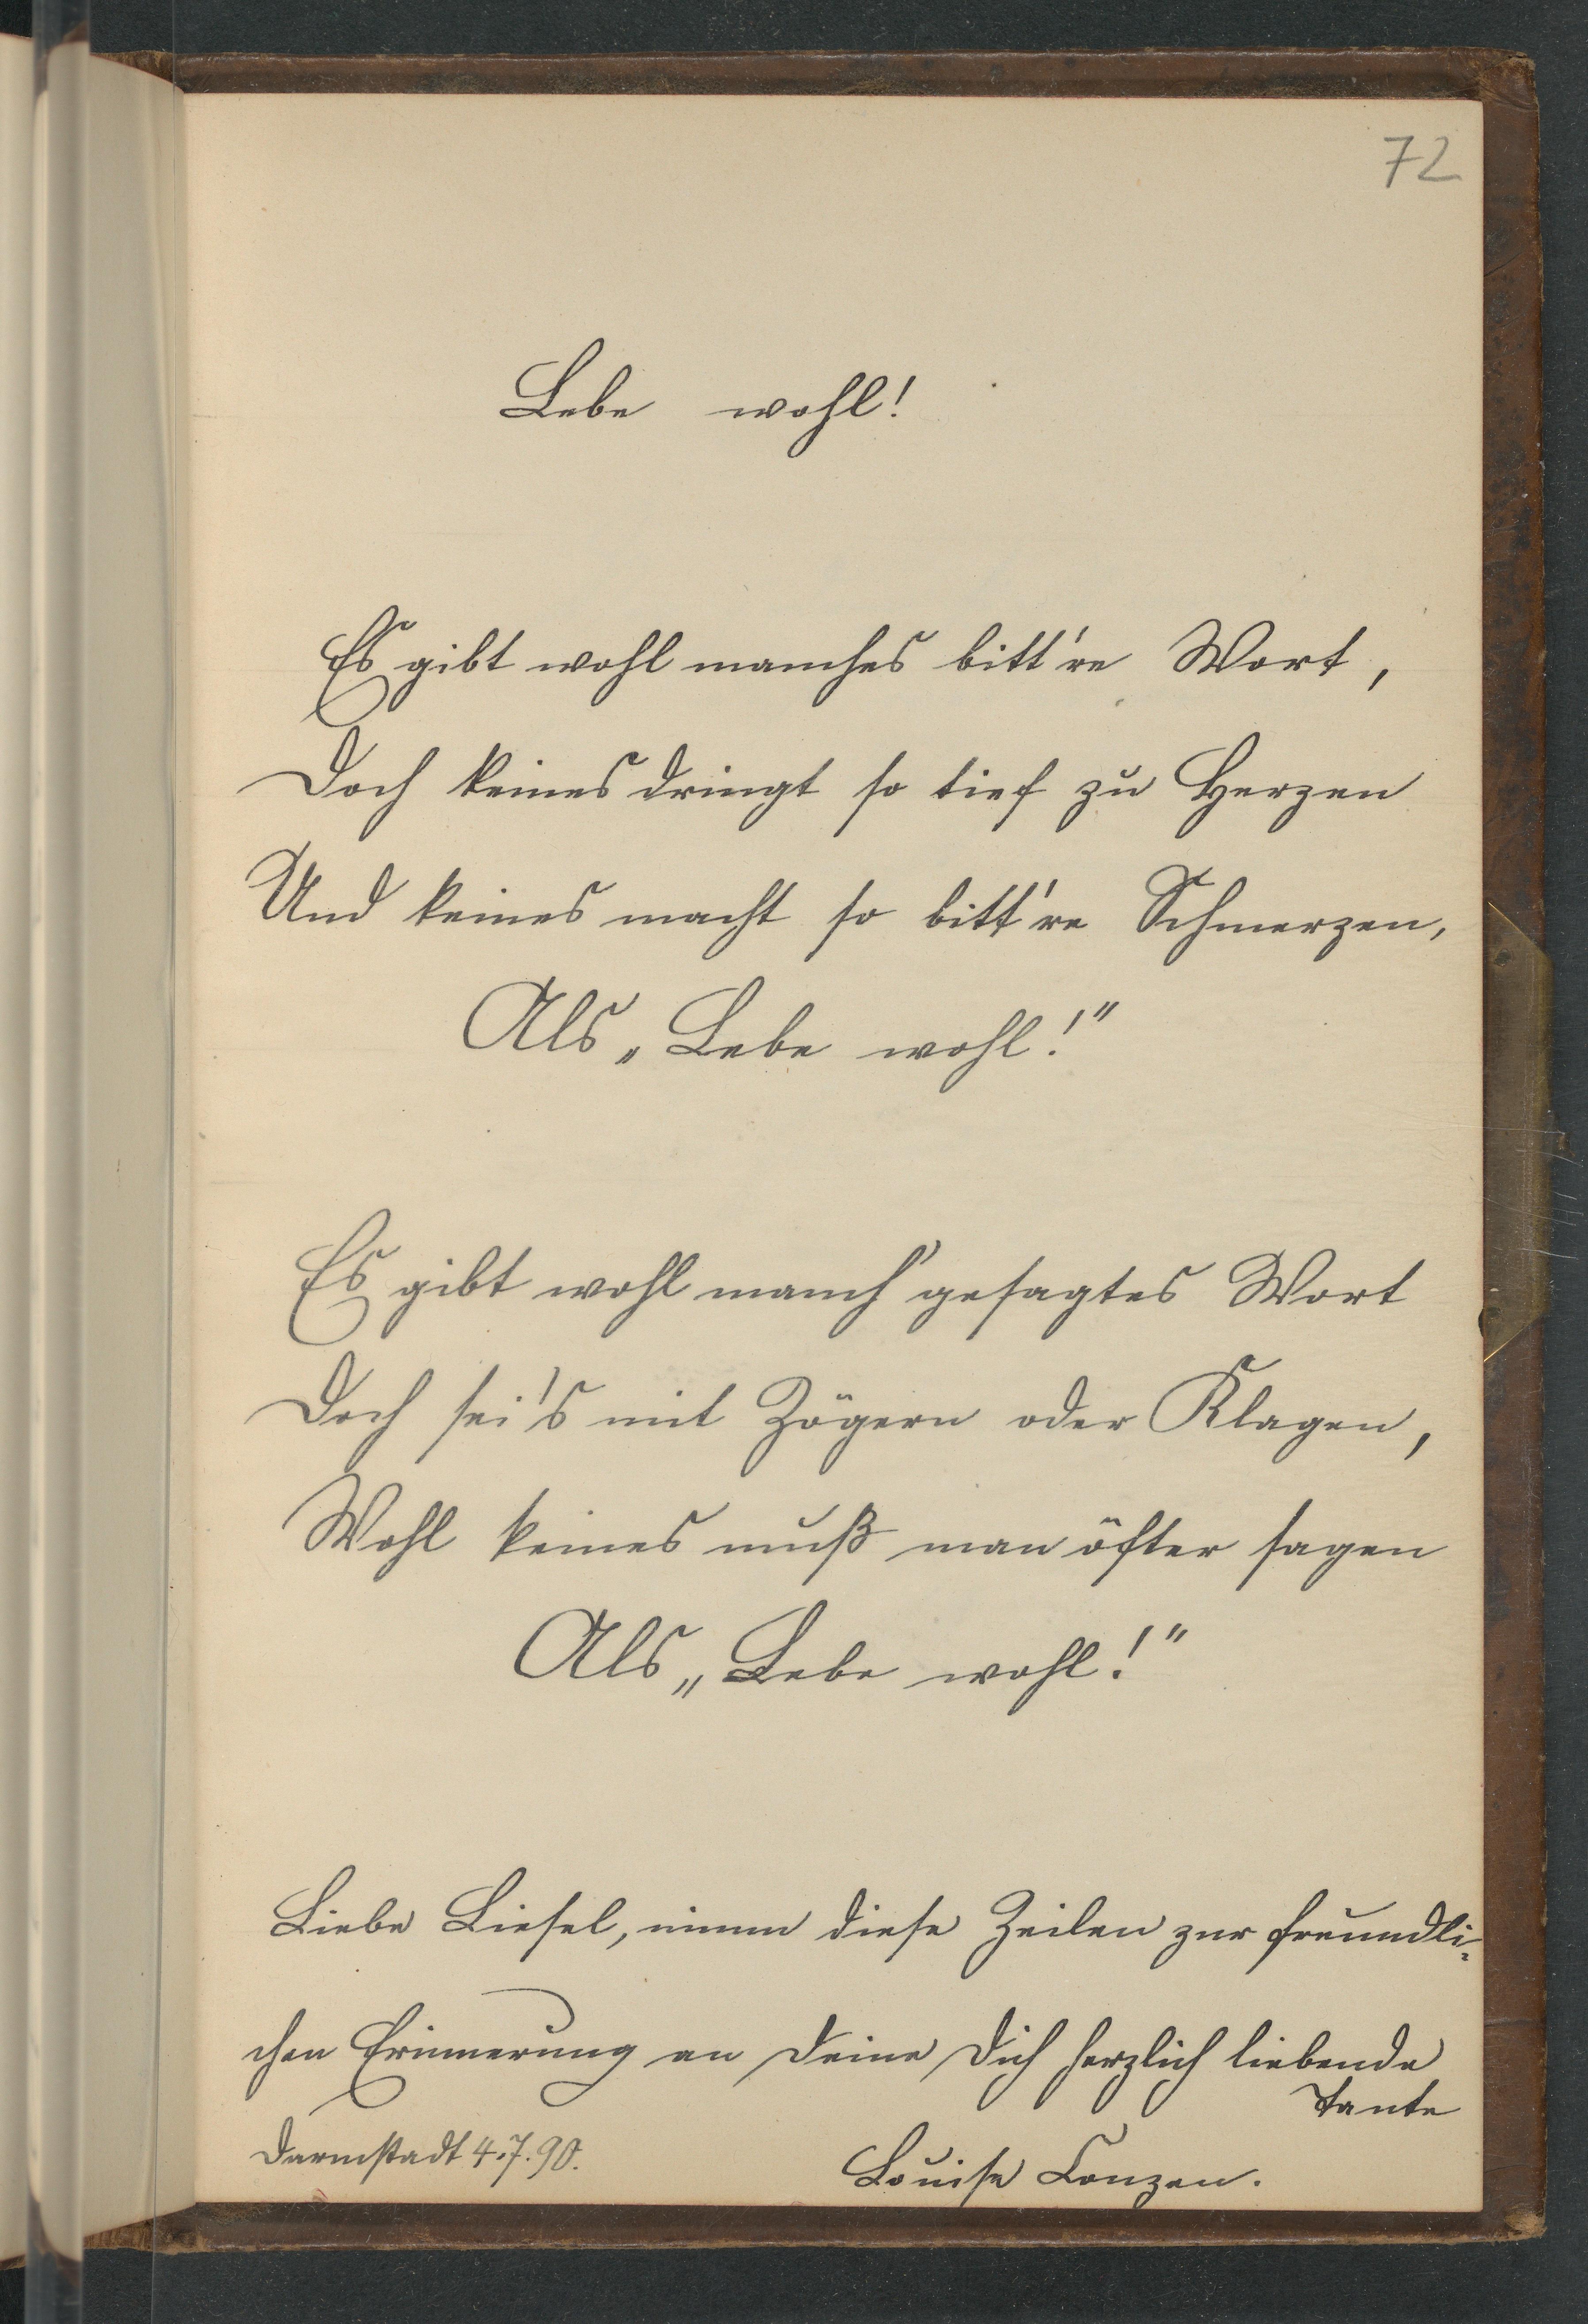 72
Lebe wohl!
Es gibt wohl manches bitt're Wort,
Doch keines dringt so tief zu Herzen
Und keines macht so bitt're Schmerzen,
Als „Lebe wohl!"
Es gibt wohl manch' gesagtes Wort
Doch sei's mit Zögern oder Klagen,
Wohl keines muß man öfter sagen
Als „Lebe wohl!"
Liebe Liesel, nimm diese Zeilen zur freundli-
chen Erinnerung an Deine Dich herzlich liebende
Tante
Darmstadt 4.7.90.
Louise Conzen.